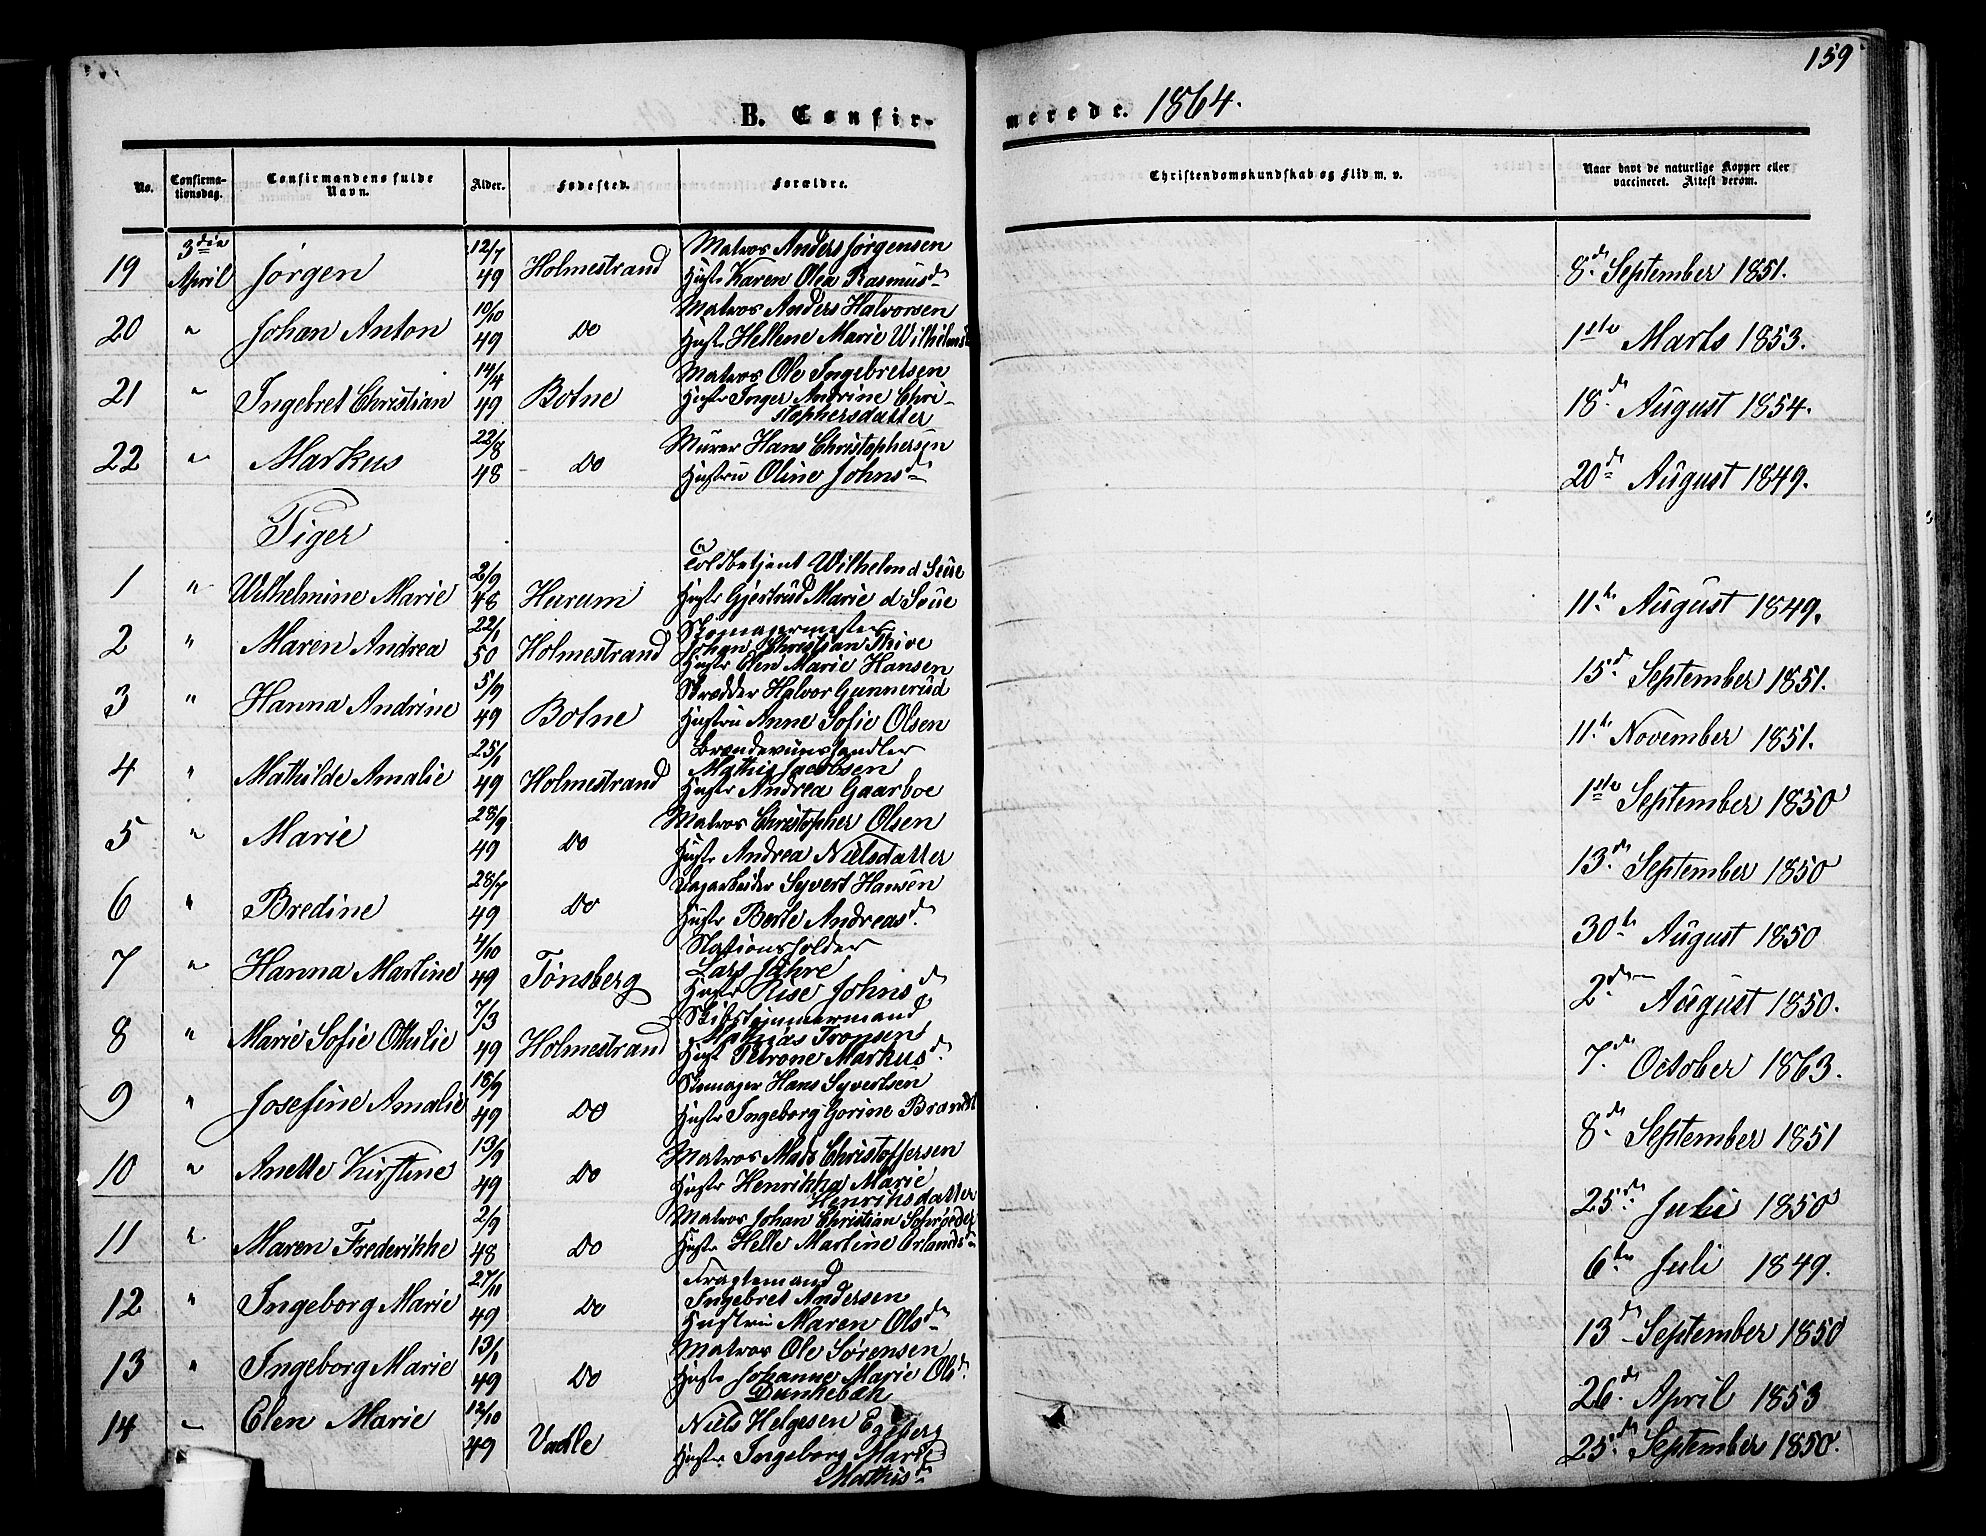 159
B. Confirmerede. 1864.
No. Confirmationsdag. Confirmandens fulde Navn. Alder. Fødested. Forældre. Christendomskundskab og Flid m. v. Naar havt de naturlige Kopper eller vaccineret. Attest derom.
19 3die April Jørgen 12/7 49 Holmestrand Matros Anders Jørgensen
Hustr Karen Olea Rasmusd. 8d. September 1851.
20 " Johan Anton 10/10 49 Do Matros Anders Halvorsen
Hustr Hellene Marie Wilhelmsd 1ste Marts 1853.
21 " Ingebret Christian 14/4 49 Botne Matros Ole Ingebretsen
Hustr Inger Andrine Chri-
stophersdatter 18d. August 1854.
22 " Markus 22/8 48 Do Murer Hans Christophersen
Hustru Oline Johnsd. 20d August 1849.
Piger
1 " Wilhelmine Marie 2/9 48 Hurum Toldbetjent Wilhelm d Seue
Hustr Gjertrud Marie d Seue 11te August 1849.
2 " Maren Andrea 22/1 50 Holmestrand Skomagermester
Johan Christian Thive
Hustr Elen Marie Hansen 15d. September 1851.
3 " Hanna Andrine 5/9 49 Botne Skrædder Halvor Gunnerud
Hustru Anne Sofie Olsen 11te November 1851.
4 " Mathilde Amalie 25/1 49 Holmestrand Brændeviinshandler
Mathis Jacobsen
Hustr Andrea Gaarboe 1ste September 1850
5 " Marie 28/9 49 Do Matros Christopher Olsen
Hustr Andrea Nielsdatter 13d. September 1850
6 " Bredine 28/7 49 Do Dagarbeider Syvert Hansen
Hustr Berte Andreasd. 30te August 1850
7 " Hanna Martine 4/10 49 Tønsberg Stationsholder
Lars Jahre
Hustr Lise Johnsd 2den August 1850.
8 " Marie Sofie Ottilie 7/3 49 Holmestrand Skibstømmermand
Mathias Tronsen
Hustr Petrone Markusd. 7de October 1863.
9 " Josefine Amalie 18/9 49 Do Skomager Hans Syvertsen
Hustr Ingeborg Gorine Brandt 8d. September 1851
10 " Anette Kirstine 13/9 49 Do Matros Mads Christoffersen
Hustr Henrikka Marie
Henriksdatter 25d. Juli 1850
11 " Maren Frederikke 2/9 48 Do Matros Johan Christian Schrøeder
Hustr Helle Martine Erlandsd 6te Juli 1849.
12 " Ingeborg Marie 27/10 49 Do Fragtemand
Ingebret Andersen
Hustru Maren Olsd. 13d September 1850
13 " Ingeborg Marie 13/1 49 Do Matros Ole Sørensen
Hustr Johanne Marie Olsd.
Dunkebæk 26d. April 1853
14 " Elen Marie 12/10 49 Vaale Niels Helgesen Egeberg
Hustr. Ingeborg Marie
Mathisd. 25d. September 1850.